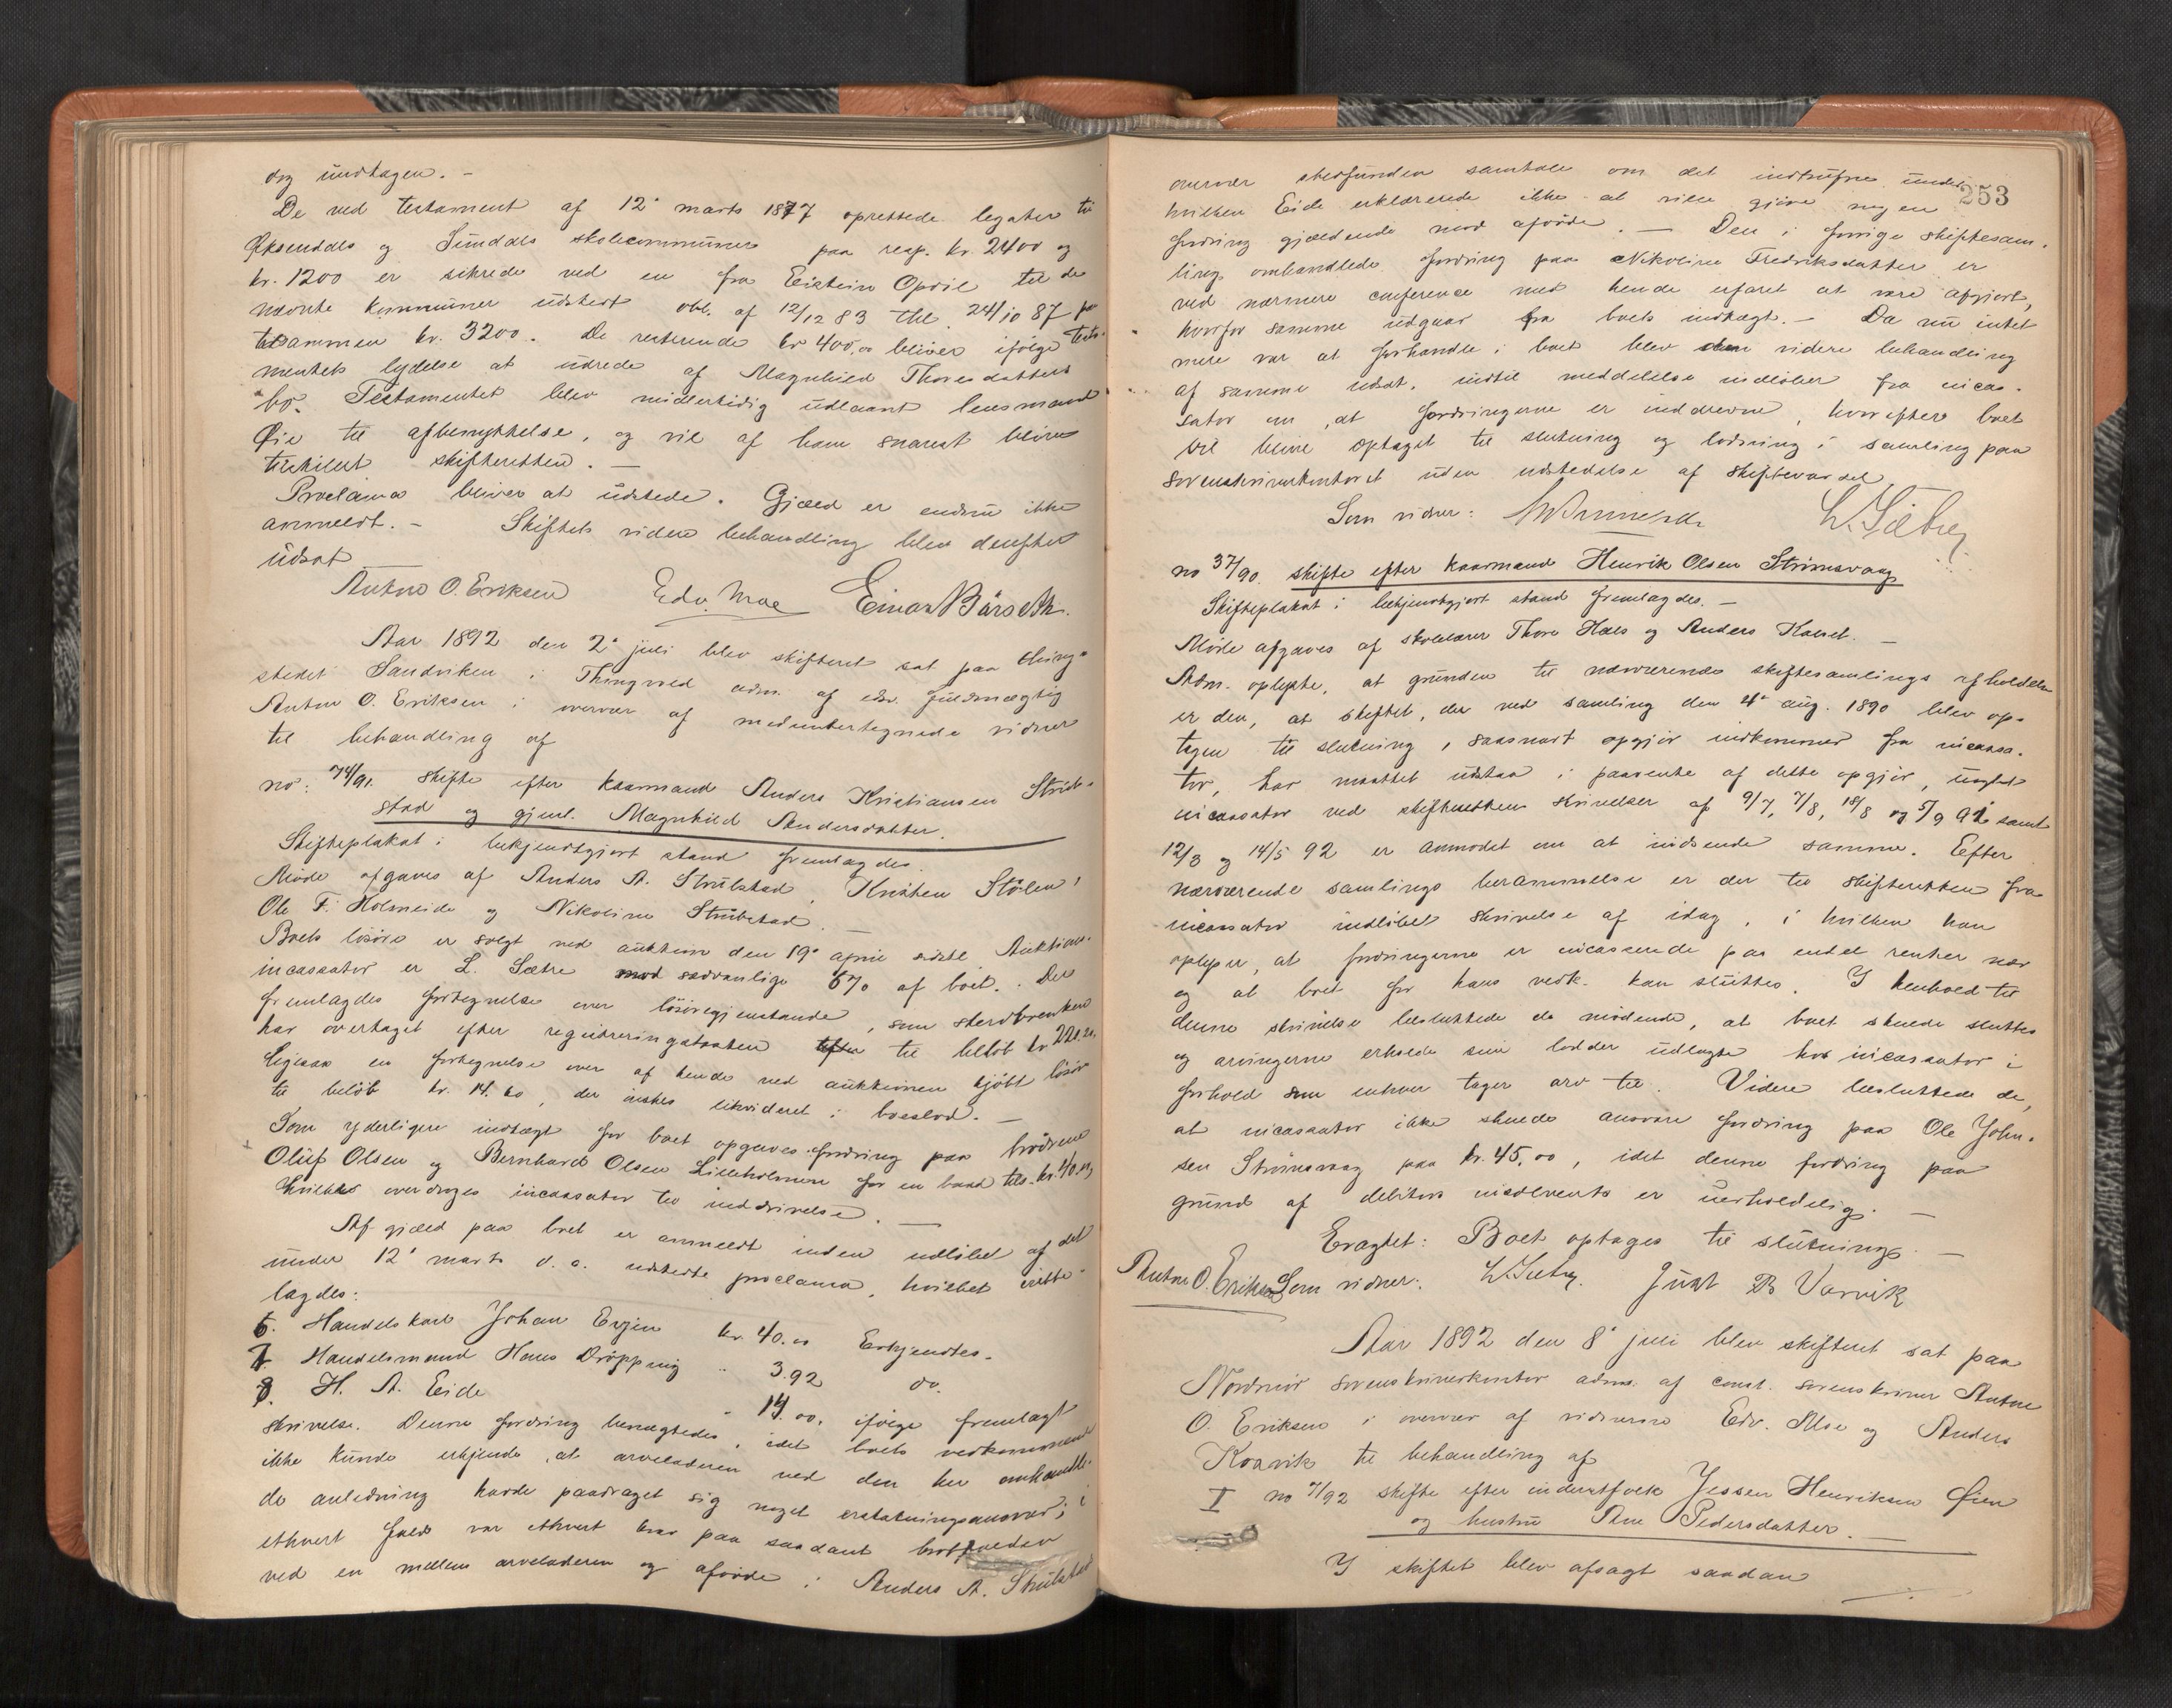 dog undtagen. -
De ved testament af 12' marts 1877 oprettede legater til
Øksendals og Sunddals skolecommuner paa resp. kr. 2400 og
kr. 1200 er sikrede ved en fra Eistein Opdöl til de
nævnte kommuner udstedt obl. af 12/12 83 thl. 24/10 87 for
tilsammen kr. 3200. De resterende kr 400,00 bliver ifølge testa-
mentets lydelse at udrede af Magnhild Thoresdatters
bo. Testamentet blev midlertidig udlaant lensmand
Øie til afbenyttelse, og vil af ham snarest blive
tilstillet skifteretten. —
Proclama bliver at udstede. Gjæld er endnu ikke
anmeldt. - Skiftets videre behandling blev derefter
udsat
Anton O. Eriksen Edv. Moe Einar Bårseth.
Aar 1892 den 2' juli blev skifteret sat paa thing-
stedet Sandviken i Thingvold adm. af edsv. fuldmægtig
Anton O. Eriksen i overvær af medundertegnede vidner
til behandling af
no: 74/91. skifte efter kaarmand Anders Kristiansen Strüb-
stad og gjenl. Magnhild Andersdatter.
Skifteplakat i bekjendtgjort stand fremlagdes.
Møde afgaves af Anders A. Strübstad, Knut Stölen,
Ole F. Holmeide og Nikoline Strübstad. —
Boets løsøre er solgt ved auktion den 19' april sidstl. Auktions-
incassator er L. Sætre mod sædvanlige 6% af boet. Der
fremlagdes fortegnelse over løsøregjenstande, som sterboenken
har overtaget efter registreringstaxten til beløb kr 221.20,
ligesaa en fortegnelse over af hende ved auktionen kjøbt løsøre
til beløb kr. 14.60, der ønskes likvideret i boeslod. —
Som yderligere indtægt for boet opgaves fordring paa brødrene
Oluf Olsen og Bernhard Olsen Lilleholmen for en baad tils. kr. 40.00,
hvilket overdroges incassator til inddrivelse. —
Af gjæld paa boet er anmeldt inden udløbet af det
under 12' marts d. a. udstedte proclama, hvilket irette-
lagdes:
6. Handelskarl Johan Evjen kr. 40.00 Erkjendtes.
7. Handelsmand Hans Dröpping " 3.92 do.
8. H. A. Eide " 14.00, ifølge fremlagt
skrivelse. Denne fordring benægtedes, idet boets vedkommende
ikke kunde erkjende, at arveladeren ved den her omhandle-
de anledning havde paadraget sig noget erstatningsansvar; i
ethvert fald var ethvert krav paa saadant bortfaldet
ved en mellem arveladeren og afdøde i Anders A. Strübstad
253
overvær stedfunden samtale om det indtrufne under
hvilken Eide erklærede ikke at ville gjøre nogen
fordring gjældende mod afdøde. — Den i forrige skiftesam-
ling omhandlede fordring paa Nikoline Fredriksdatter er
ved nærmere conference med hende erfaret at være afgjort,
hvorfor samme udgaar fra boets indtægt. — Da nu intet
mere var at forhandle i boet blev den videre behandling
af samme udsat, indtil meddelelse indløber fra incas-
sator om, at fordringerne er inddrevne, hvorefter boet
vil blive optaget til slutning og lodning i samling paa
sorenskriverkontoret uden udstedelse af skiftevarsel
Som vidner: L. Sætre
no 37/90. skifte efter kaarmand Henrik Olsen Strömsvaag
Skifteplakat i bekjendtgjort stand fremlagdes. —
Møde afgaves af skolelærer Thore Hals og Anders Kalset. —
Adm. oplyste, at grunden til nærværende skiftesamlings afholdelse
er den, at skiftet, der ved samling den 4' aug. 1890 blev op-
tagen til slutning, saasnart opgjør indkommer fra incassa-
tor, har maattet udstaa i paavente af dette opgjør, uagtet
incassator ved skifterettens skrivelser af 9/7, 7/8, 18/8 og 5/9 91 samt
12/3 og 14/5 92 er anmodet om at indsende samme. Efter
nærværende samlings berammelse er der til skifteretten fra
incassator indløbet skrivelse af idag, i hvilken han
oplyser, at fordringerne er incasserede paa endel renter nær
og at boet for hans vedk. kan sluttes. I henhold til
denne skrivelse besluttede de mødende, at boet skulde sluttes
og arvingerne erholde sine lodder udlagte hos incassator i
forhold som enhver tager arv til. Videre besluttede de,
at incassator ikke skulde ansvare fordring paa Ole John-
sen Strömsvaag paa kr. 45,00, idet denne fordring paa
grund af debitors insolvents er uerholdelig. —
Eragtet: Boet optages til slutning. —
Anton O. Eriksen Som vidner: L. Sætre. Just B Varvik
Aar 1892 den 8' juli blev skifteret sat paa
Nordmør sorenskriverkontor adm. af const. sorenskriver Anton
O. Eriksen i overvær af vidnerne Edv. Moe og Anders
Korsvik til behandling af
I no 7/92 skifte efter inderstfolk Jessen Henriksen Øien
og hustru Ane Pedersdatter. —
I skiftet blev afsagt saadan